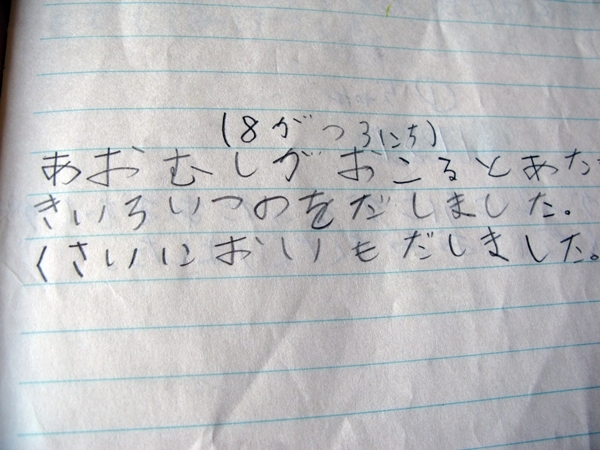 (8がつ3にち)
あおむしがおこるとあた
きいろいつのをだしました。
くさいにおいもだしました。